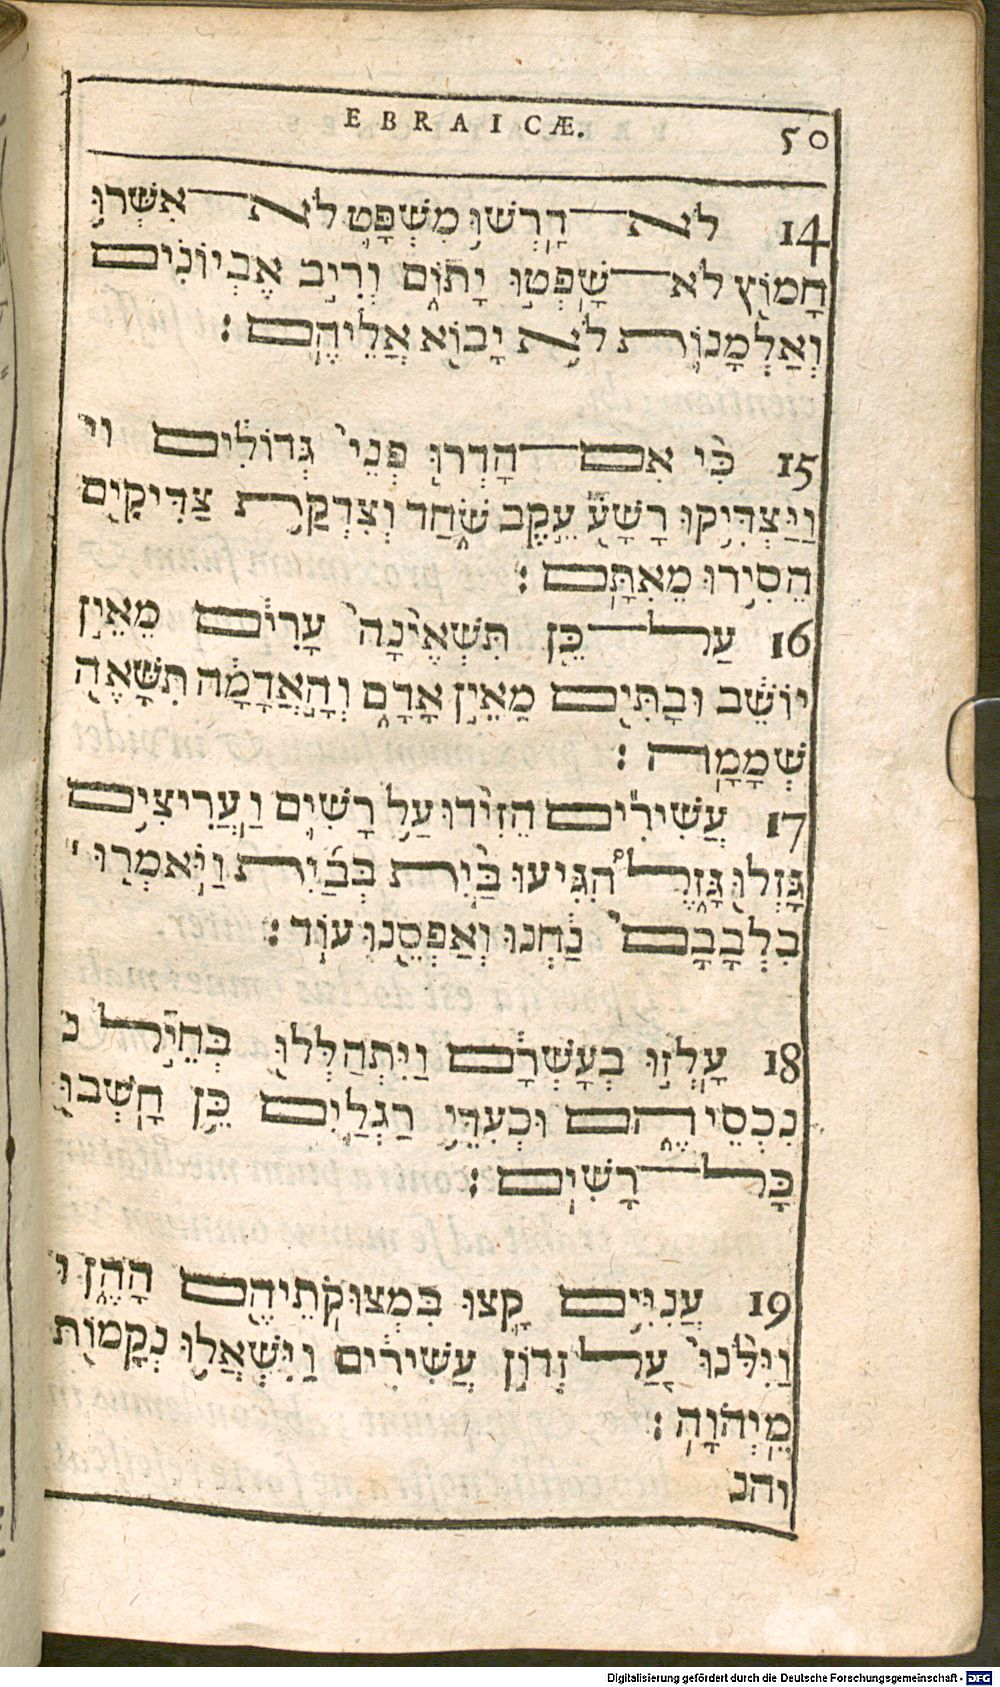 EBRAICÆ. 50
14 לֹא־דָרְשׁוּ מִשְׁפָּט לֹא־אִשְּׁרוּ
חָמוֹץ לֹא־שָׁפְטוּ יָתוֹם וְרִיב אֶבְיוֹנִים
וְאַלְמָנוֹת לֹא יָבוֹא אֲלֵיהֶם׃
15 כִּי אִם־הָדְרוּ פְּנֵי גְּדוֹלִים וי
וַיַּצְדִּיקוּ רָשָׁע עֵקֶב שֹׁחַד וְצִדְקַת צַדִּיקִים
הֵסִירוּ מֵאִתָּם׃
16 עַל־כֵּן תִּשְׁאֶינָה עָרִים מֵאֵין
יוֹשֵׁב וּבָתִּים מֵאֵין אָדָם וְהָאֲדָמָה תִּשָּׁאֶה
שְׁמָמָה׃
17 עֲשִׁירִים הֵזִידוּ עַל רָשִׁים וַעֲרִיצִים
גָּזְלוּ גָּזֶל הִגִּיעוּ בַּיִת בְּבַיִת וַיֹּאמְרוּ
בִלְבָבָם נַחְנוּ וְאַפְסֵנוּ עוֹד׃
18 עָלְזוּ בְעָשְׁרָם וַיִּתְהַלְּלוּ בְּחֵיל נ
נִכְסֵיהֶם וּכְעִדֵּי רַגְלַיִם כֵּן חָשְׁבוּ
כָּל־רָשִׁים׃
19 עֲנִוִּים קָצוּ בִּמְצוּקֹתֵיהֶם הָהֶן ו
וַיִּלֹּנוּ עַל זְדוֹן עֲשִׁירִים וַיִּשְׁאֲלוּ נְקָמוֹת
מֵיְהֹוָה׃
והנ
Digitalisierung gefördert durch die Deutsche Forschungsgemeinschaft - DFG